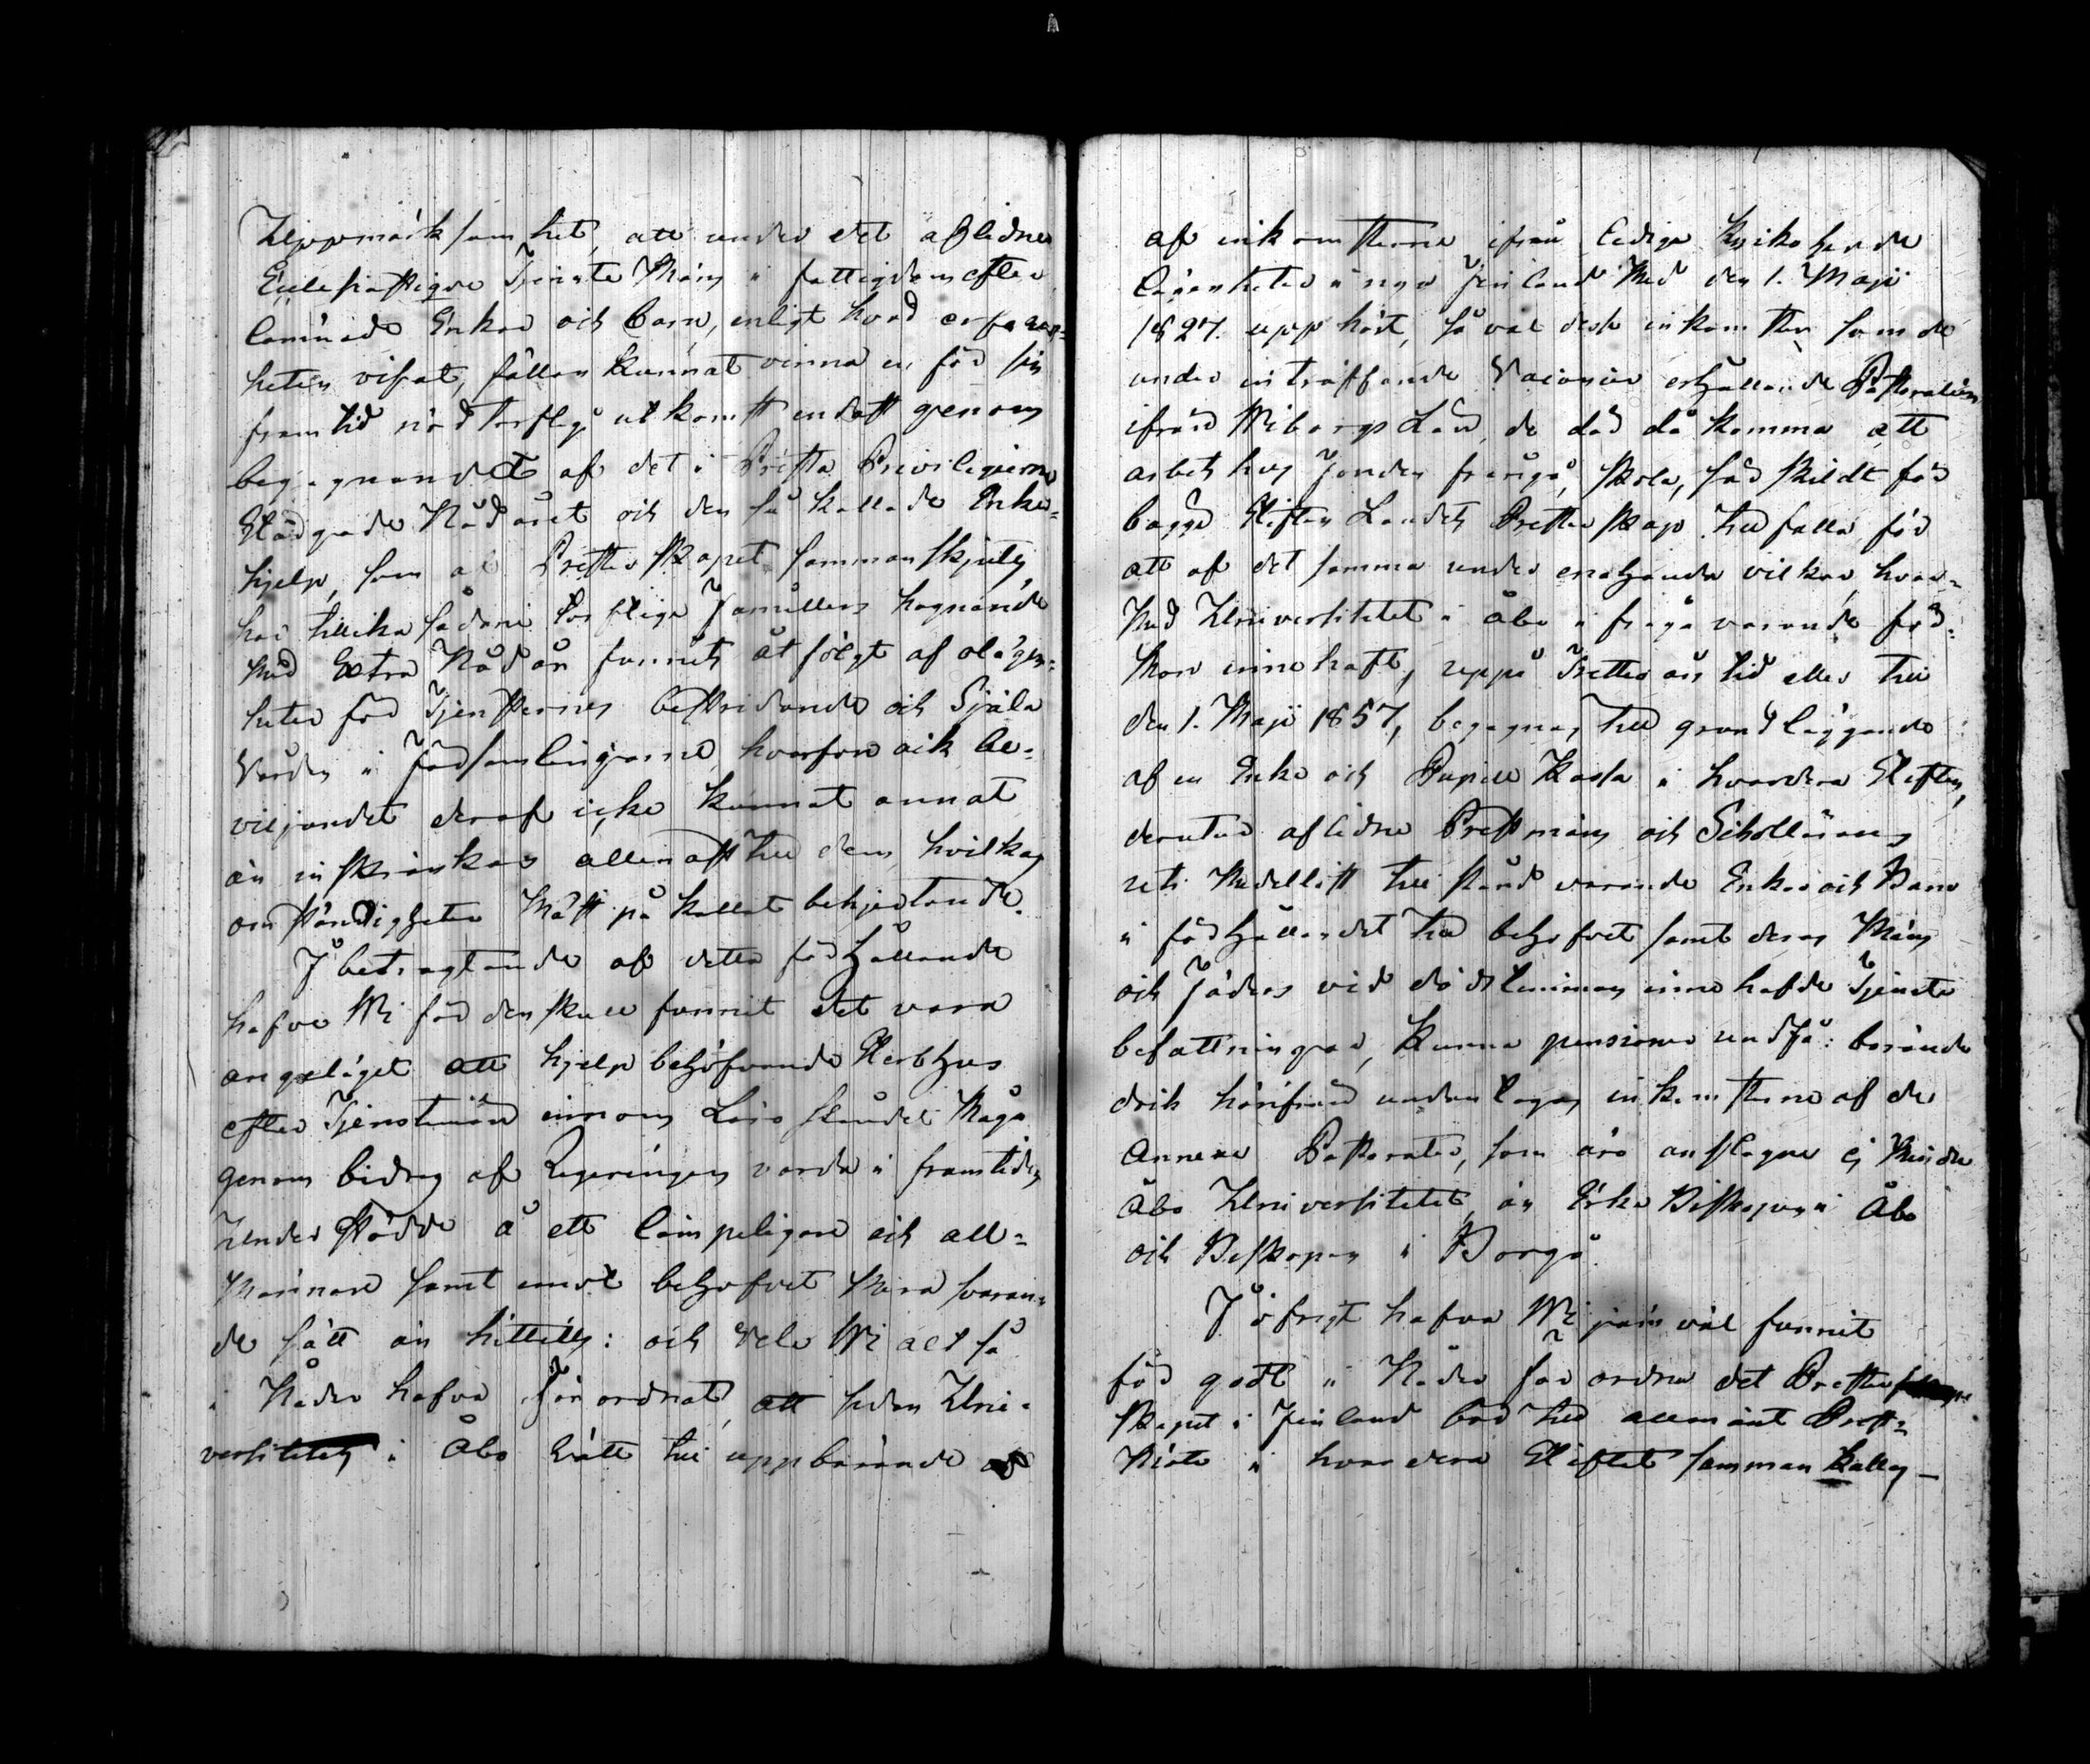 Uppmärksamhet, att under det aflidne
Ecclesiastique Tjenste Mäns i fattigdom efter
lämnade Enkor och barn, enligt hvad erfaren-
heten visat, sällan kunnat vinna en för sin
framtid nödtorftig utkomst endast genom
begagnandet af det i Presta Privilegierne
Stadgade Nådåret och den så kallade Enke-
hjelp, som af Presterskapet sammanskjutes,
har tillika sådane torftige Familliers hugnande
med Extra Nådår funnits åtföljt af olägen-
heter för Tjensternes bestridande och Själa
Vården i Församlingarne, hvarföre ock be-
viljandet deraf icke kunnat annat
än inskränkas allenast till dem hvilkas
omständigheter mäst påkallat behjertande.
I betragtande af detta förhållande
hafve Wi för den skull funnit det vara
angeläget att hjelp behöfvande Sterbhus
efter Tjenstemän innom Läro ståndet måge
genom bidrag af Regeringen varda i framtiden
Understödde å ett lämpeligare och all-
männare samt emot behofvet mera svaran-
de sätt än hittills: och vele Wi altså
i Nåder hafva förordnat, att sedan Uni-
versitetets i Åbo Rätt till uppbärande af
af inkomsterne ifrån lediga Kyrkoherde
lägenheter i nya Finland med den 1. Maji
1827. upphört, så väl desse inkomster som de
under inträffande Vacancer erhållande Pastoralier
ifrån Wiborgs Län, de där då komma att
arbetshus Fonden frångå, skola, särskildt för
bägge Stiften Landets Presterskap tillfalla för
att af det samma under enahanda vilkor, hvar-
med Universitetet i Åbo i fråga varande för-
mon innehaft, uppå Trettio års tid eller till
den 1. Maji 1857, begagnas till grundläggande
af en Enke och Pupill Kassa i hvardera Stiften,
derutur aflidne Prestmäns och Schollärares
uti Medellöst tillstånd varande Enkor och Barn
i förhållandet till behofvet samt deras Mäns
och Fäders vid dödstimman innehafde Tjenste
befattningar, kunna pensioner undfå: börande
dock härifrån undantagas inkomsterne af de
Annexe Pastorater, som äro anslagne ej mindre
Åbo Universitetet än Erke Biskopen i Åbo
och Biskopen i Borgå.
I öfrigt hafva Wi jämväl funnit
för godt i Nåder förordna det Prester
skapet i Finland bör till allmänt Prest-
Möte i hvardera Stiftet samman kallas –